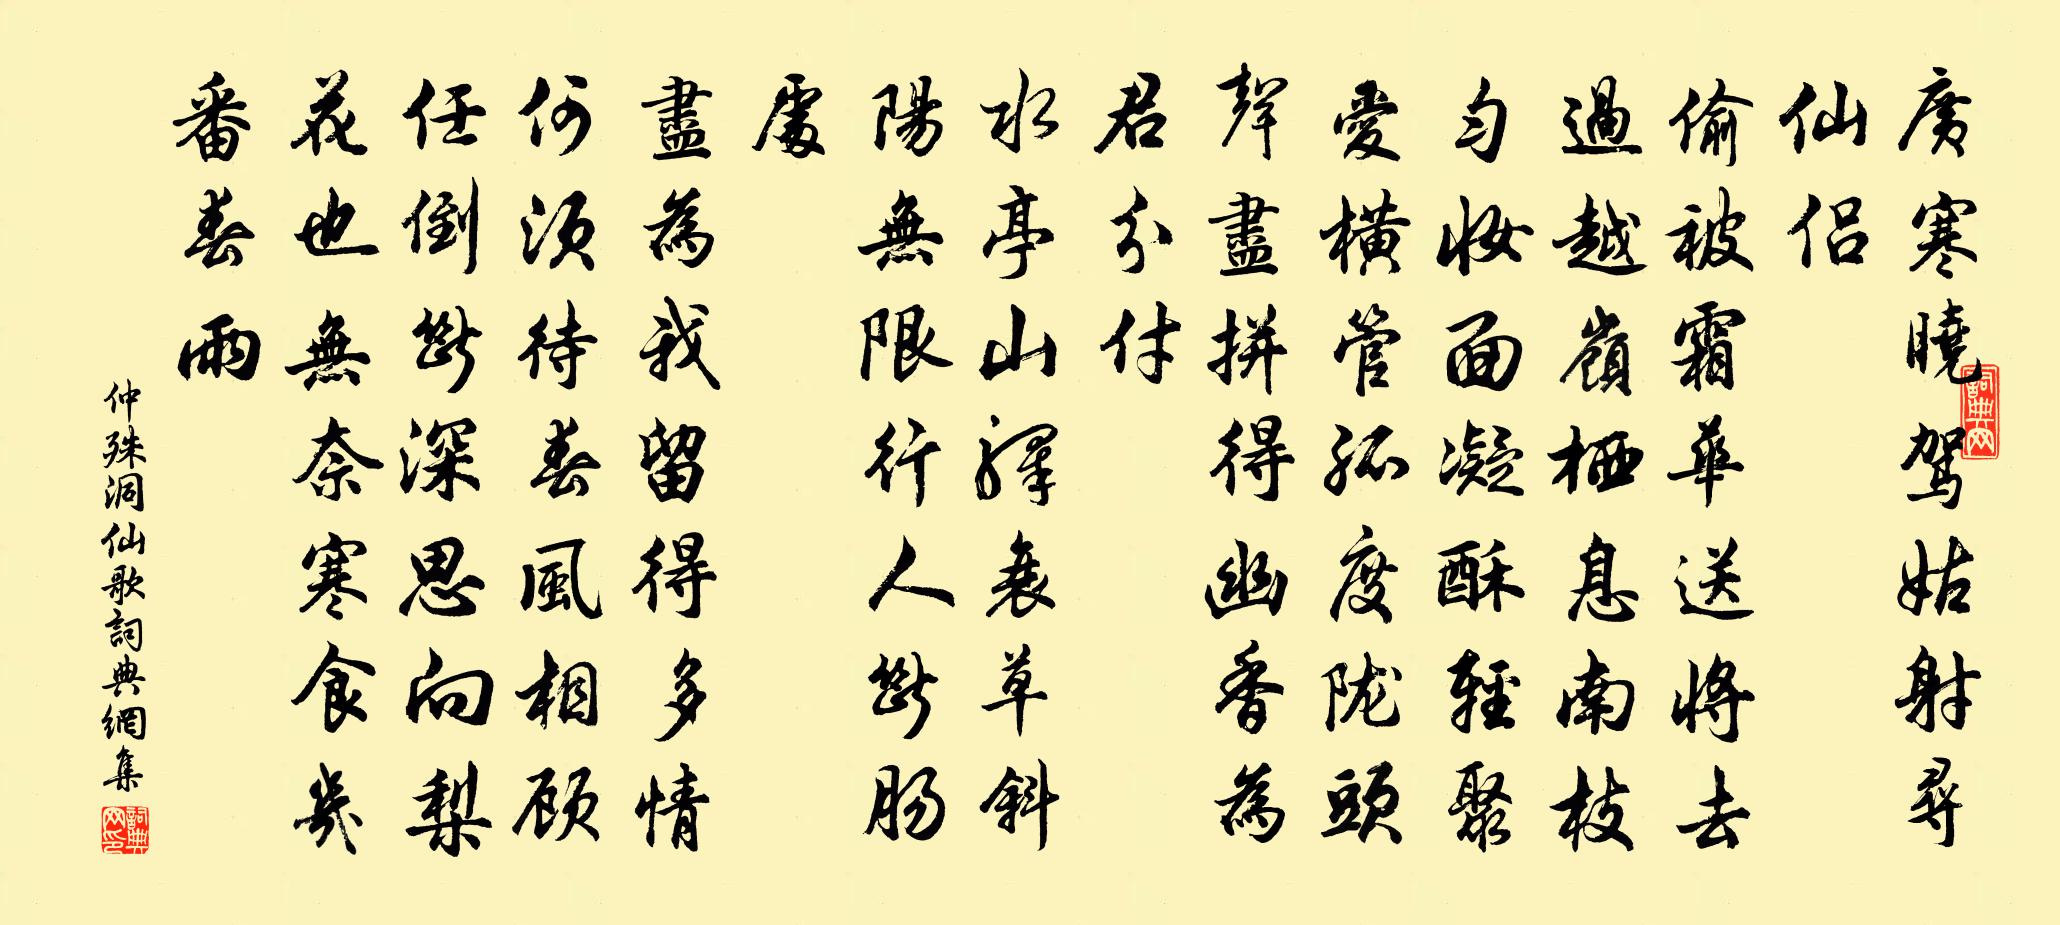 廣寒曉駕姑射尋
仙侶
偷被霜華送將去
過越嶺栖息南枝
勻妝面凝酥輕聚
愛橫管孤度隴頭
聲盡拼得幽香為
君分付
水亭山驛衰草斜
陽無限行人斷腸
處
盡為我留得多情
何須待春風相顧
任倒斷深思向梨
花也無奈寒食幾
番春雨
仲殊洞仙歌詞典網集
詞典网
詞典网印